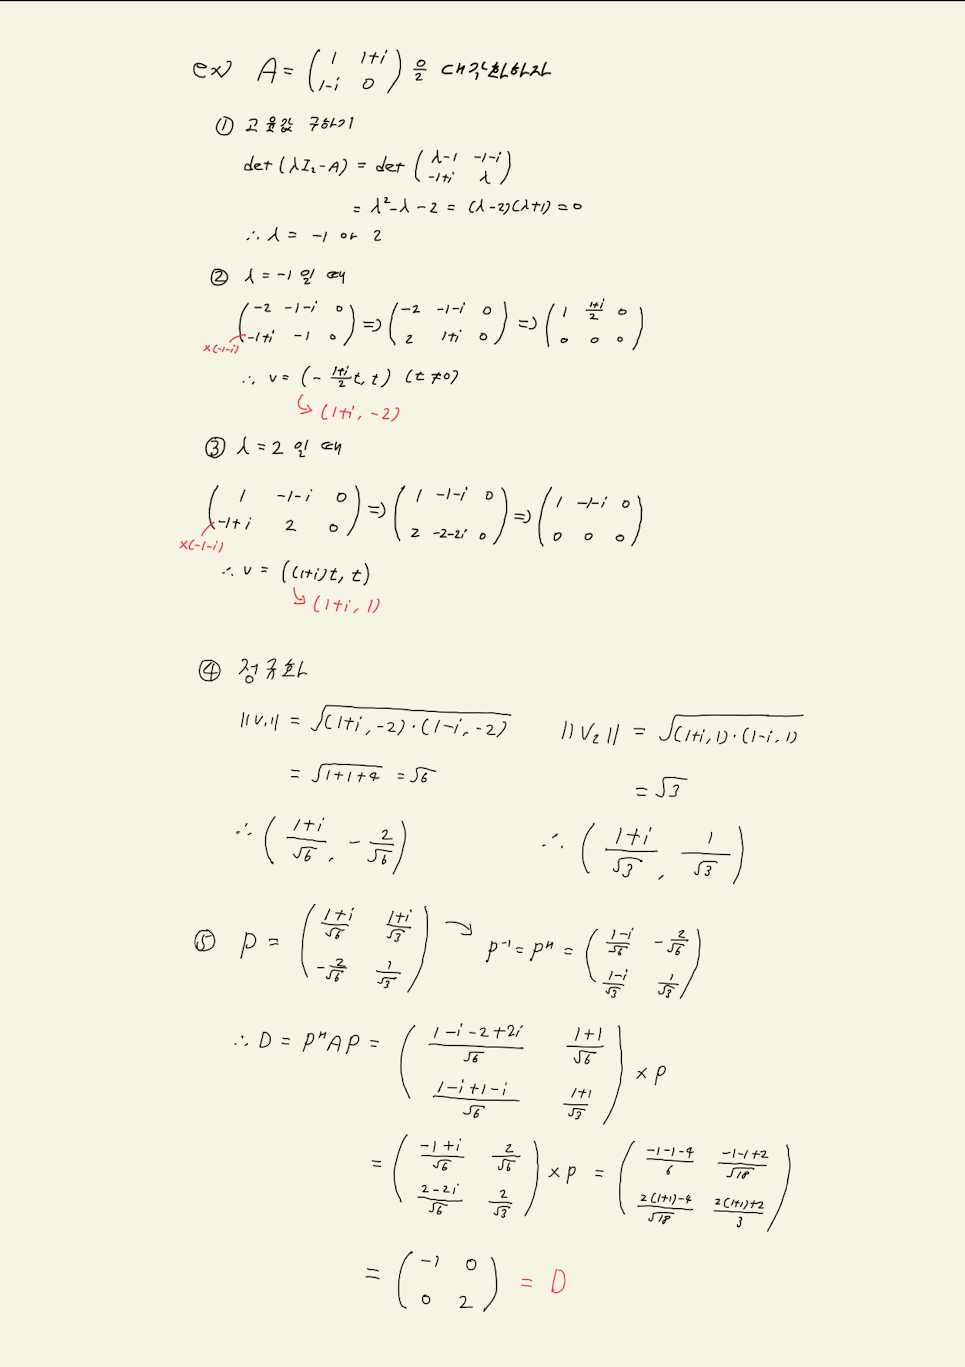 ex) A = ( 1 1+i / 1-i 0 ) 을 대각화하자
① 고윳값 구하기
det (λI₂-A) = det ( λ-1 -1-i / -1+i λ )
= λ²-λ-2 = (λ-2)(λ+1) = 0
∴ λ = -1 or 2
② λ = -1 일 때
( -2 -1-i 0 / -1+i -1 0 ) => ( -2 -1-i 0 / 2 1+i 0 ) => ( 1 (1+i)/2 0 / 0 0 0 )
×(-1-i)
∴ v = (- (1+i)/2 t, t) (t ≠ 0)
↳ (1+i, -2)
③ λ = 2 일 때
( 1 -1-i 0 / -1+i 2 0 ) => ( 1 -1-i 0 / 2 -2-2i 0 ) => ( 1 -1-i 0 / 0 0 0 )
×(-1-i)
∴ v = ((1+i)t, t)
↳ (1+i, 1)
④ 정규화
||v₁|| = √((1+i, -2)·(1-i, -2)) ||v₂|| = √((1+i, 1)·(1-i, 1))
= √(1+1+4) = √6 = √3
∴ ( (1+i)/√6 , - 2/√6 ) ∴ ( (1+i)/√3 , 1/√3 )
⑤ P = ( (1+i)/√6 (1+i)/√3 / -2/√6 1/√3 ) → P⁻¹ = Pᴴ = ( (1-i)/√6 -2/√6 / (1-i)/√3 1/√3 )
∴ D = PᴴAP = ( (1-i-2+2i)/√6 (1+1)/√6 / (1-i+1-i)/√6 (1+1)/√3 ) × P
= ( (-1+i)/√6 2/√6 / (2-2i)/√6 2/√3 ) × P = ( (-1-1-4)/6 (-1-1+2)/√18 / (2(1+1)-4)/√18 (2(1+1)+2)/3 )
= ( -1 0 / 0 2 ) = D